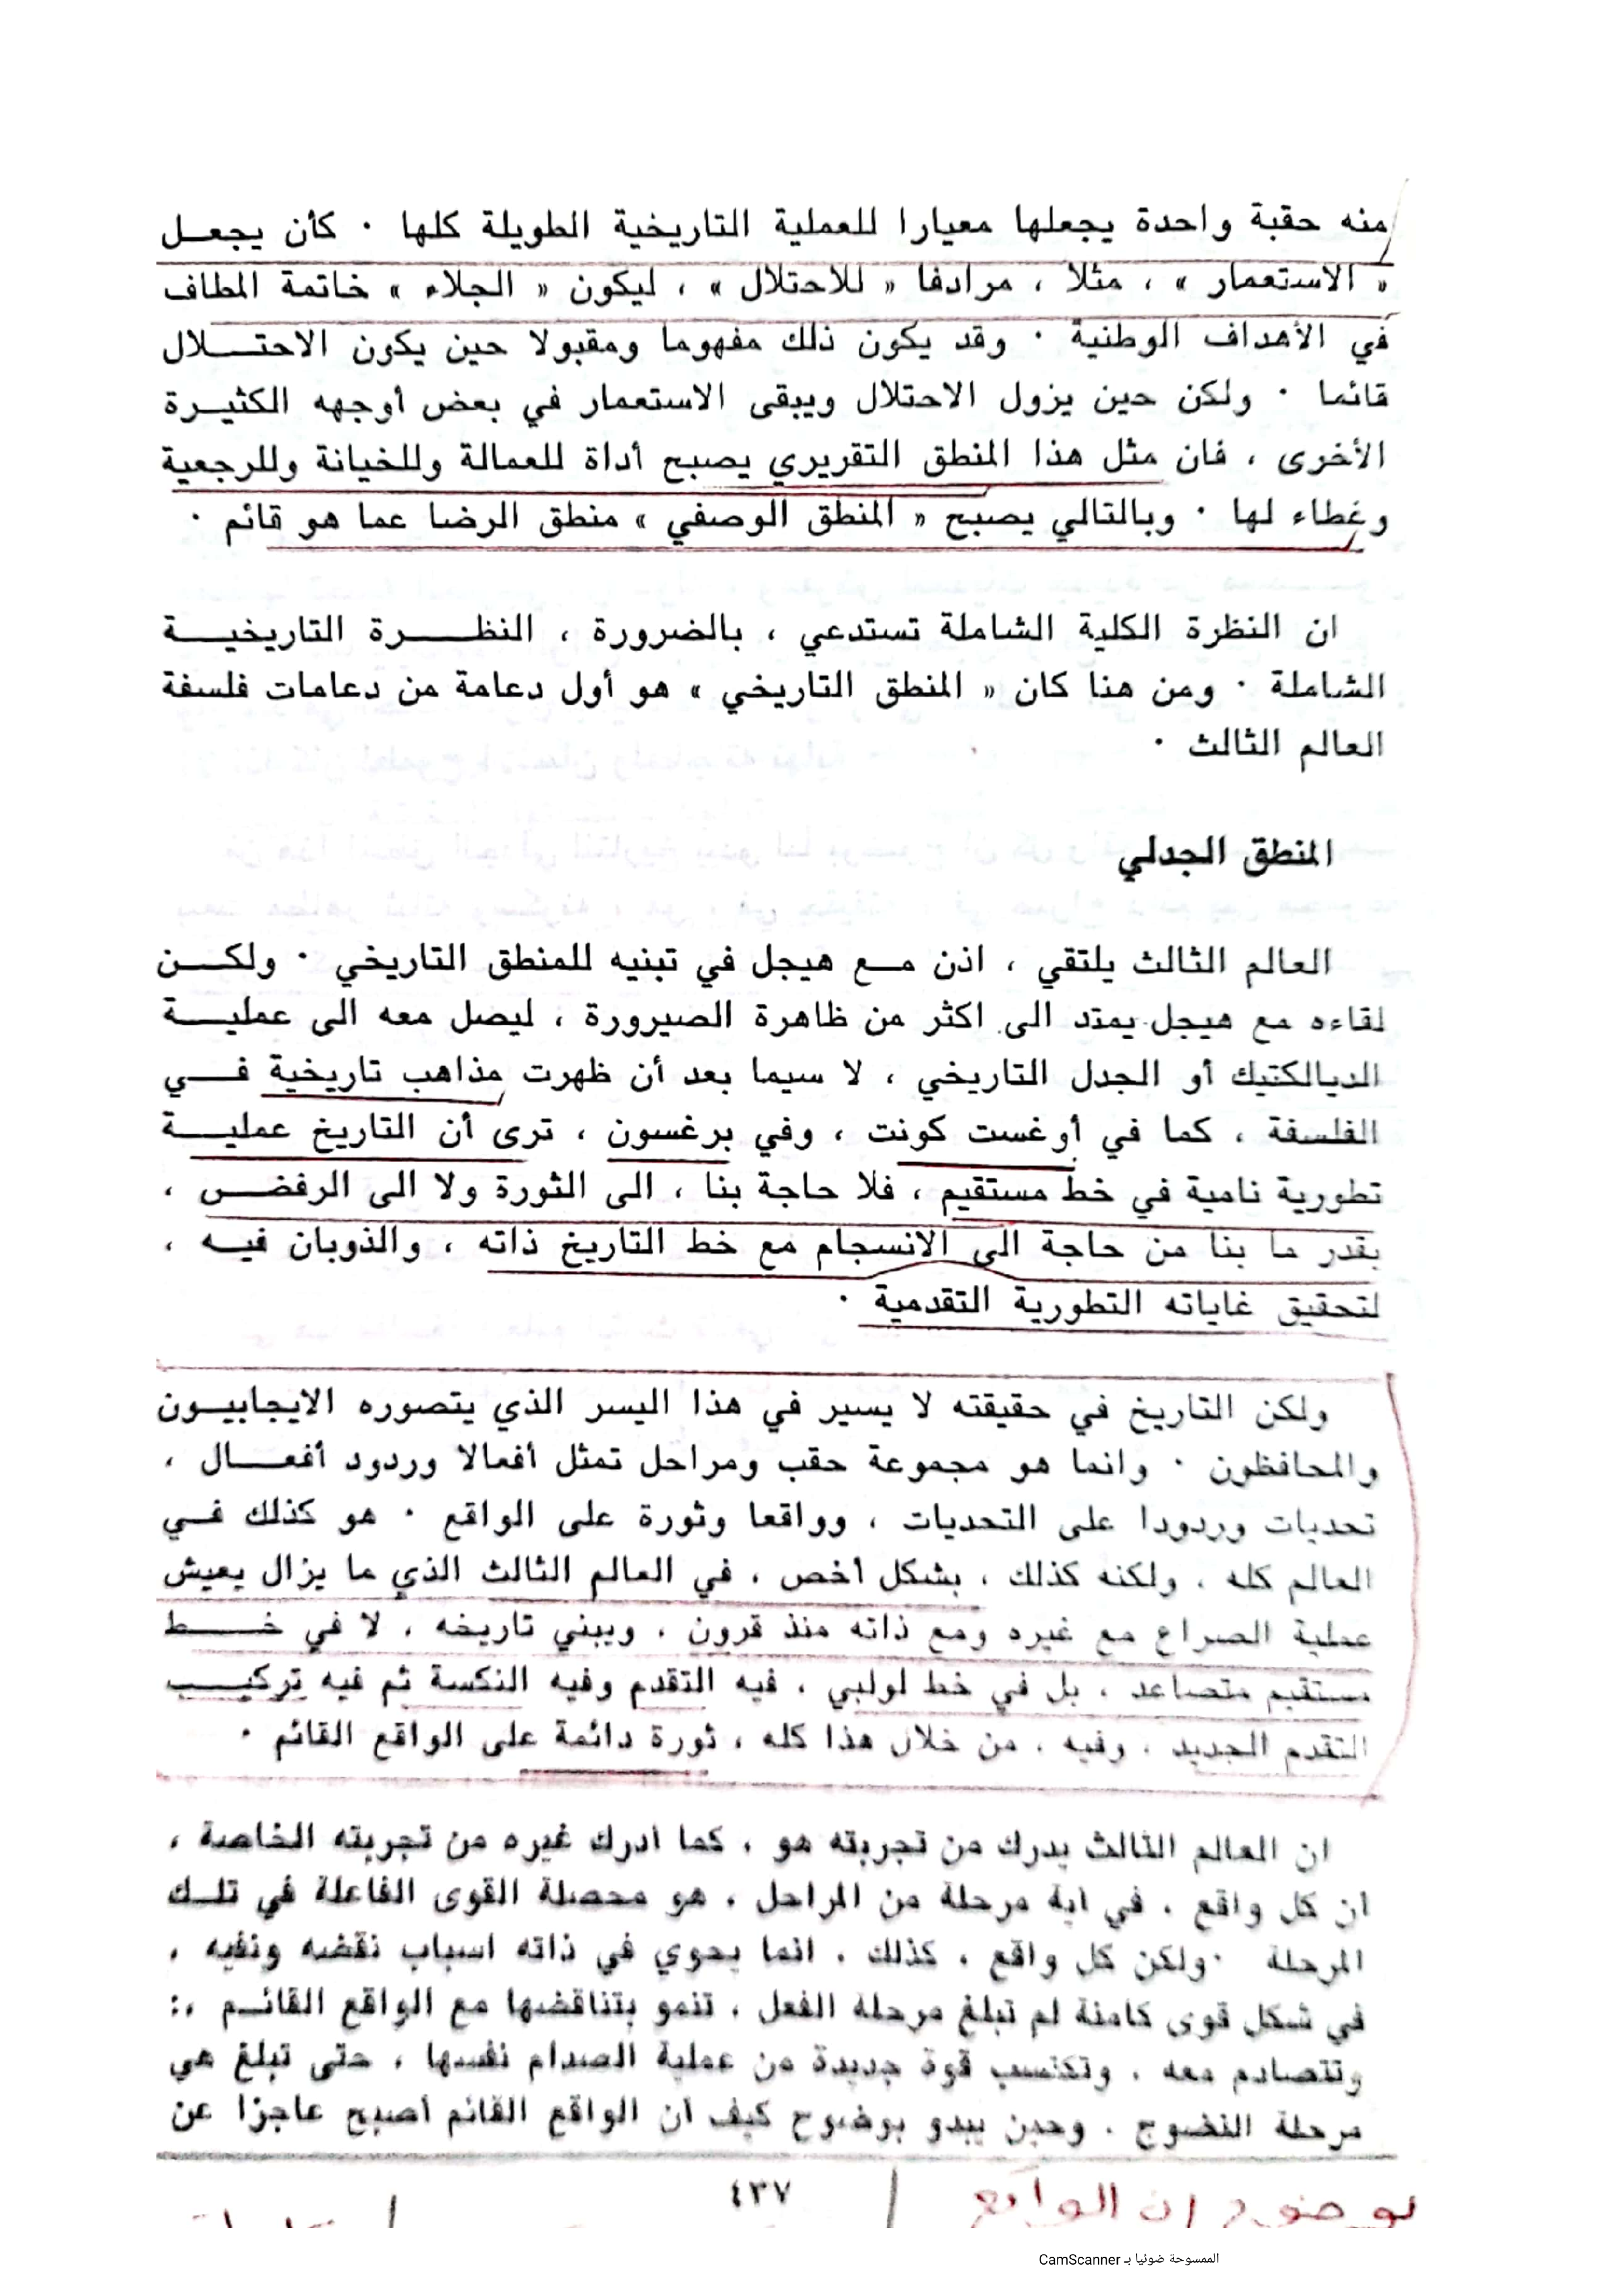 منه حقبة واحدة يجعلها معيارا للعملية التاريخية الطويلة كلها ٠ كأن يجعـل
« الاستعمار » ، مثلا ، مرادفا « للاحتلال » ، ليكون « الجلاء » خاتمة المطاف
في الأهداف الوطنية ٠ وقد يكون ذلك مفهوما ومقبولا حين يكون الاحتـــلال
قائما ٠ ولكن حين يزول الاحتلال ويبقى الاستعمار في بعض أوجهه الكثيـرة
الأخرى ، فان مثل هذا المنطق التقريري يصبح أداة للعمالة وللخيانة وللرجعية
وغطاء لها ٠ وبالتالي يصبح « المنطق الوصفي » منطق الرضا عما هو قائم ٠
ان النظرة الكلية الشاملة تستدعي ، بالضرورة ، النظـــرة التاريخيـــة
الشاملة ٠ ومن هنا كان « المنطق التاريخي » هو أول دعامة من دعامات فلسفة
العالم الثالث ٠
المنطق الجدلي
العالم الثالث يلتقي ، اذن مـع هيجل في تبنيه للمنطق التاريخي ٠ ولكـــن
لقاءه مع هيجل يمتد الى اكثر من ظاهرة الصيرورة ، ليصل معه الى عمليـــة
الديالكتيك أو الجدل التاريخي ، لا سيما بعد أن ظهرت مذاهب تاريخية فـــي
الفلسفة ، كما في أوغست كونت ، وفي برغسون ، ترى أن التاريخ عمليـــة
تطورية نامية في خط مستقيم ، فلا حاجة بنا ، الى الثورة ولا الى الرفض ،
بقدر ما بنا من حاجة الى الانسجام مع خط التاريخ ذاته ، والذوبان فيـه ،
لتحقيق غاياته التطورية التقدمية ٠
ولكن التاريخ في حقيقته لا يسير في هذا اليسر الذي يتصوره الايجابيـون
والمحافظون ٠ وانما هو مجموعة حقب ومراحل تمثل أفعالا وردود أفعـــال ،
تحديات وردودا على التحديات ، وواقعا وثورة على الواقع ٠ هو كذلك فـي
العالم كله ، ولكنه كذلك ، بشكل أخص ، في العالم الثالث الذي ما يزال يعيش
عملية الصراع مع غيره ومع ذاته منذ قرون ، ويبني تاريخه ، لا في خـــط
مستقيم متصاعد ، بل في خط لولبي ، فيه التقدم وفيه النكسة ثم فيه تركيـــب
التقدم الجديد ، وفيه ، من خلال هذا كله ، ثورة دائمة على الواقع القائم ٠
ان العالم الثالث يدرك من تجربته هو ، كما أدرك غيره من تجربته الخاصة ،
ان كل واقع ، في أية مرحلة من المراحل ، هو محصلة القوى الفاعلة في تلـك
المرحلة ٠ ولكن كل واقع ، كذلك ، انما يحوي في ذاته اسباب نقضه ونفيه ،
في شكل قوى كامنة لم تبلغ مرحلة الفعل ، تنمو بتناقضها مع الواقع القائـم ،:
وتتصادم معه ، وتكتسب قوة جديدة من عملية الصدام نفسها ، حتى تبلغ هي
مرحلة النضوج ٠ وحين يبدو بوضوح كيف أن الواقع القائم أصبح عاجزا عن
٤٣٧
بوضوح إن الواقع
الممسوحة ضوئيا بـ CamScanner